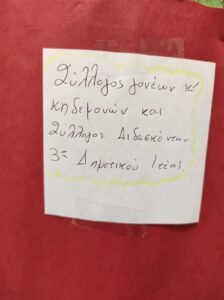 Σύλλογος γονέων κ'
κηδεμονών και
Σύλλογος Διδασκόντων
3ου Δημοτικού Ιτέας